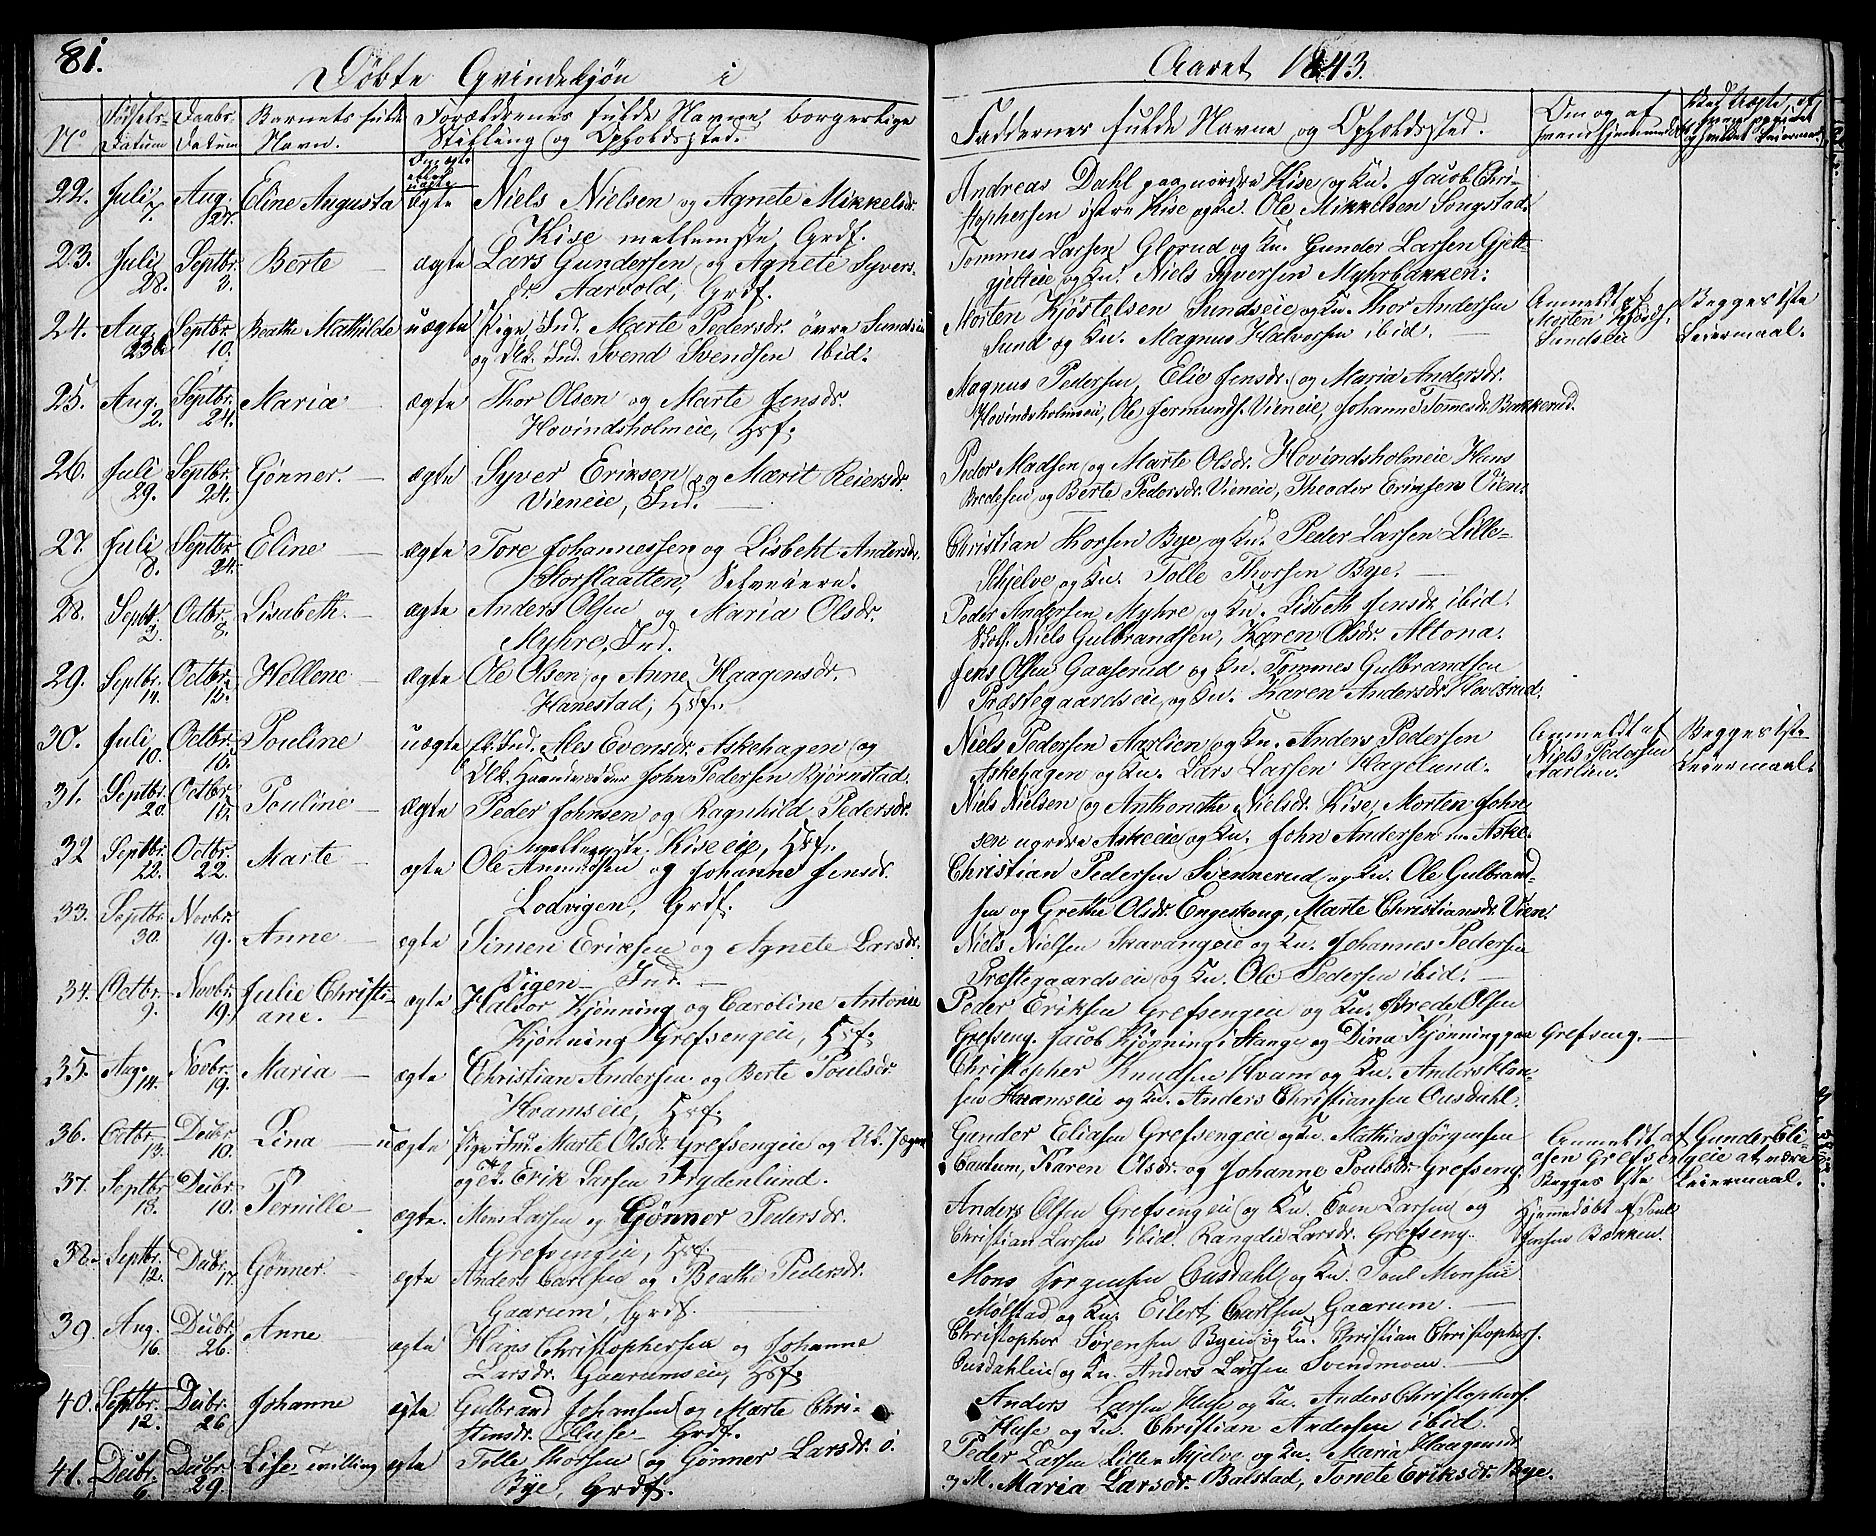 81.
Döbte Qvindekjön i
Aaret 1843.
No
Födsels-Datum
Daabs-Datum
Barnets fulde Navn.
Forældrenes fulde Navne, borgerlige
Stilling og Opholdssted.
Om ægte eller uægte
Faddernes fulde Navne og Opholdssted.
Om og af
22. Juli 7. Aug. 27. Eline Augusta ægte Niels Nielsen og Agnete Mikkelsdr.
Kise mellemste Grdf.
Andreas Dahl paa nordre Kise og Kn. Jacob Chri-
stophersen östre Kise og Kn. Ole Mikkelsen Songstad.
23. Juli 28. Septbr. 3. Berte ægte Lars Gundersen og Agnete Syvers-
dr. Aarvold, Grdf.
Tommes Larsen Glorud og Kn. Gunder Larsen Gjett-
Kn. Niels Syversen Myhrbakken.
24. Aug. 23d. Septbr. 10. Beathe Mathilde uægte Pige Ind. Marte Pedersdr. övre Sundseie
og Ind. Svend Svendsen ibid.
Morten Kjöstelsen Sundseie og Kn. Thor Andersen
Sund og Kn. Magnus Halvorsen ibid.
Anmeldt af
Morten Kjöstels.
Sundseie
Begges 1ste
Leiermaal.
25. Aug. 2. Septbr. 24. Maria ægte Thor Olsen og Marte Jensdr.
Hovindsholmeie, Hsf.
Magnus Pedersen, Elie Jensdr. og Maria Andersdr.
Hovindsholmeie, Ole Jermunds. Vieneie, Johanne Tommesdr. Bakkerud.
26. Juli 29. Septbr. 24. Gönner. ægte Syver Eriksen og Marit Reiersdr.
Vieneie, Ind.
Peder Madsen og Marte Olsdr. Hovindsholmeie Hans
Bredesen og Berte Pedersdr. Vieneie, Theodor Eriksen Vien.
27. Juli 8. Septbr. 24. Eline ægte Tore Johannessen og Lisbeht Andersdr.
Storslaatten, Selveiere.
Christian Thorsen Bye og Kn. Peder Larsen Lille-
Schjelve og Kn. Tolle Thorsen Bye.
28. Septbr. 2. Octbr. 8. Lisabeth. ægte Anders Olsen og Maria Olsdr.
Myhre, Ind.
Peder Andersen Myhre og Kn. Lisbeth Jensdr. ibid.
Niels Gulbrandsen, Karen Olsdr. Altona.
29. Septbr. 14. Octbr. 15. Hellene ægte Ole Olsen og Anne Haagensdr.
Hanestad, Hsf.
Jens Olsen Gaaserud og Kn. Tommes Gulbrandsen
Præstegaardseie og Kn. Karen Andersdr. Hovdrud.
30. Juli 10. Octbr. 15. Pouline uægte Ind. Ales Evensdr. Askehagen og
Ulk. Haandværker John Pedersen Bjørnstad.
Niels Pedersen Aarlien og Kn. Anders Pedersen
Askehagen og Kn. Lars Larsen Hagelund.
Anmeldt af
Niels Pedersen
Aarlien.
Begges 1ste
Leiermaal.
31. Septbr. 20. Octbr. 15. Pouline ægte Peder Johnsen og Ragnhild Pedersdr.
mellemste Kiseeie, Hsf.
Niels Nielsen og Anthonethe Nielsdr. Kise, Morten John-
sen nordre Askeeie og Kn. John Andersen Aske.
32 Septbr. 22. Octbr. 22. Marte ægte Ole Amundsen og Johanne Jensdr.
Lodvigen, Grdf.
Christian Pedersen Svennerud og Kn. Ole Gulbrand-
sen og Grethe Olsdr. Engeskoug, Marte Christiansdr. Vien.
33. Septbr. 30. Novbr. 19. Anne ægte Simen Eriksen og Agnete Larsdr.
Vigen Ind.
Niels Nielsen Skavangeie og Kn. Johannes Pedersen
Præstegaardseie og Kn. Ole Pedersen ibid.
34. Octbr. 9. Novbr. 19. Julie Christi-
ane. ægte Halvor Kjønning og Caroline Antonie
Kjønning Grefsengeie, Hsf.
Peder Eriksen Grefsengeie og Kn. Brede Olsen
Grefseng. Jacob Kjønning i Stange og Dina Kjønning paa Grefseng.
35. Aug. 14. Novbr. 19. Maria ægte Christian Andersen og Berte Poulsdr.
Hvamseie, Hsf.
Christopher Knudsen Hvam og Kn. Anders Han-
sen Hvamseie og Kn. Anders Christiansen Ousdahl.
36. Octbr. 13. Decbr. 10. Lina uægte Pige Ind. Marte Olsdr. Grefsengeie og Uk. Jæger
og Erik Larsen Frydenlund.
Gunder Eliasen Grefsengeie og Kn. Mathias Jörgensen
Cautum, Karen Olsdr. og Johanne Poulsdr. Grefseng.
Anmeldt af Gunder Eli-
asen Grefsengeie at være
Begges 1ste Leiermaal.
37. Septbr. 15. Decbr. 10. Pernille ægte. Mons Larsen og Gönner Pedersdr.
Grefsengeie, Hsf.
Anders Olsen Grefsengeie og Kn. Even Larsen og
Christian Larsen ibid. Rangdie Larsdr. Grefseng.
Hjemmedöbt af Poul
Jensen Bakken.
38. Septbr. 12. Decbr. 17. Gönner ægte Anders Carlsen og Beathe Pedersdr.
Gaarum, Grdf.
Mons Jörgensen Ousdahl og Kn. Poul Monsen
Mölstad og Kn. Eilert Carlsen Gaarum.
39. Aug. 16. Decbr. 26. Anne ægte Hans Christophersen og Johanne
Larsdr. Gaarumseie, Hsf.
Christopher Sörensen Byeeie og Kn. Christian Christophers.
Ousdahleie og Kn. Anders Larsen Svendmoen.
40. Septbr. 12. Decbr. 26 Johanne ægte Gulbrand Johansen og Marte Chri-
stensdr. Huse Grdf.
Anders Larsen Huse og Kn. Anders Christophers.
Huse og Kn. Christian Andersen ibid.
41. Decbr. 6. Decbr. 29. Lise Tvilling ægte Tolle Thorsen og Gönner Larsdr. ö.
Bye, Grdf.
Peder Larsen Lille Skjelve og Kn. Maria Haagensdr.
og M. Maria Larsdr. Balstad, Tonete Eriksdr. Bye.